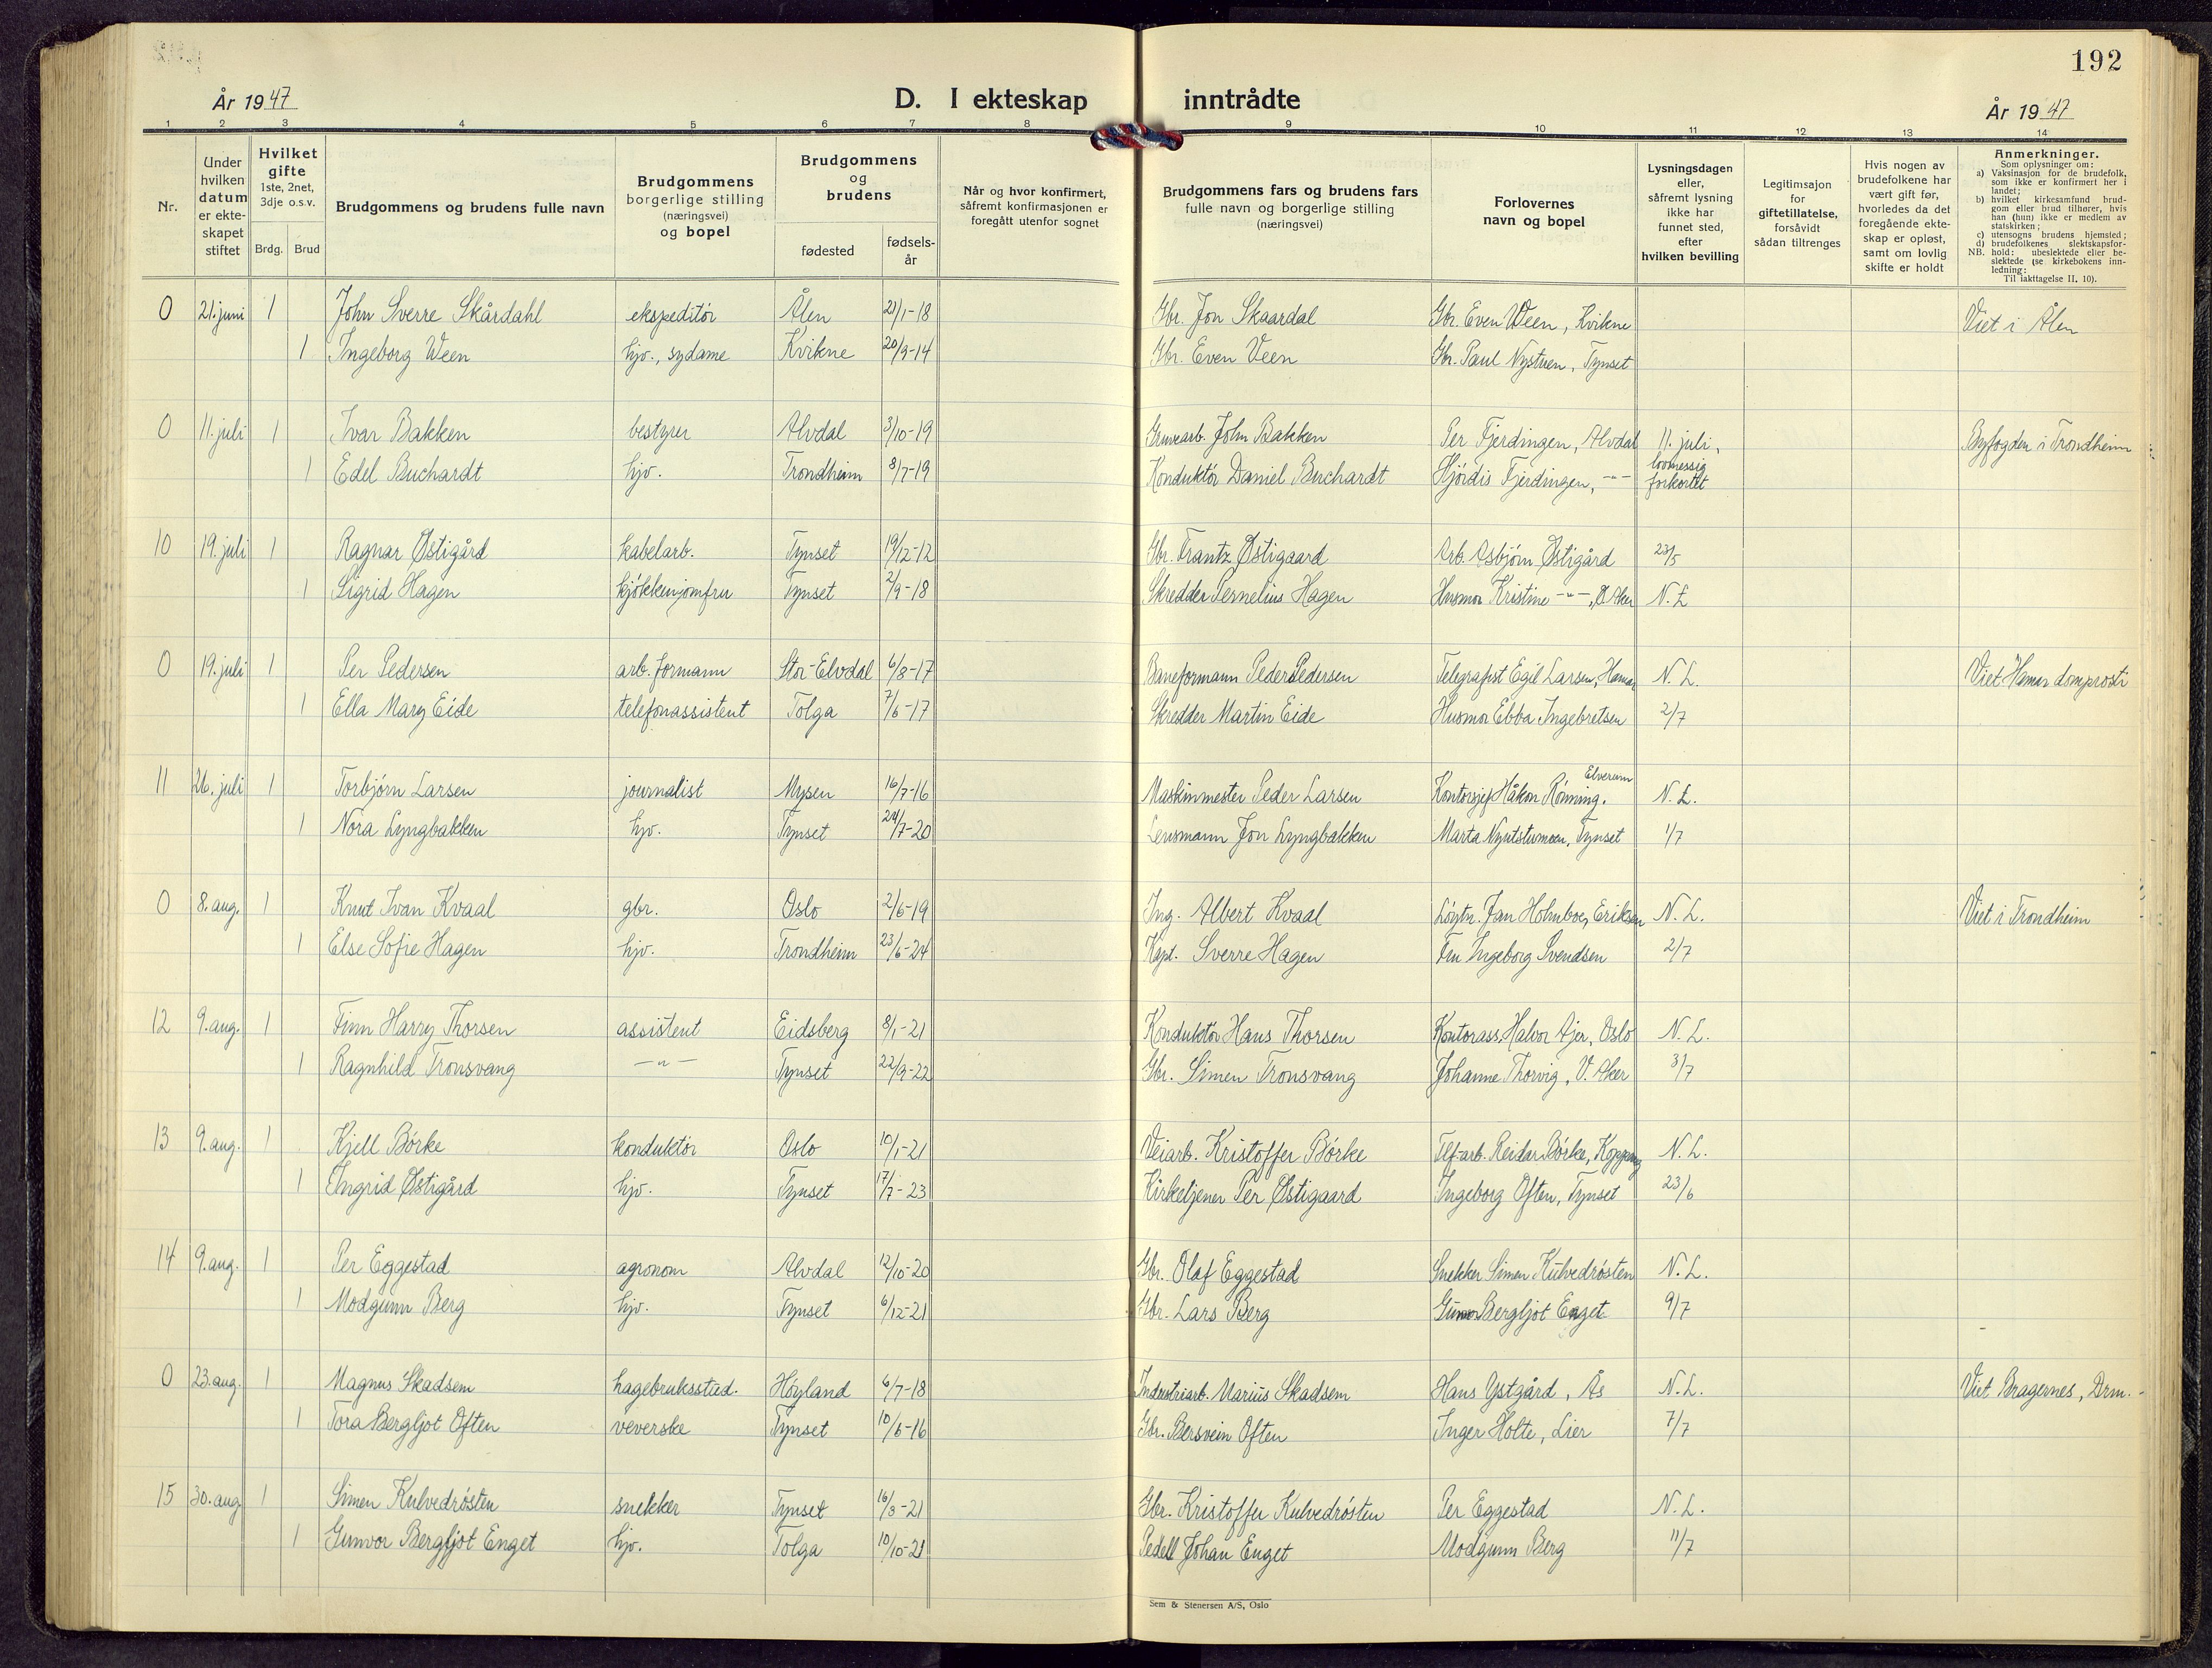 192
År 1947
D. I ekteskap inntrådte
År 1947
1 2 3 4 5 6 7 8 9 10 11 12 13 14
Nr.
Under hvilken datum er ekte-skapet stiftet
Hvilket gifte 1ste, 2net, 3dje o.s.v.
Brdg. Brud
Brudgommens og brudens fulle navn
Brudgommens borgerlige stilling (næringsvei) og bopel
Brudgommens og brudens
fødested
fødsels-år
Når og hvor konfirmert, såfremt konfirmasjonen er foregått utenfor sognet
Brudgommens fars og brudens fars fulle navn og borgerlige stilling (næringsvei)
Forlovernes navn og bopel
Lysningsdagen eller, såfremt lysning ikke har funnet sted, efter hvilken bevilling
Legitimsajon for giftetillatelse, forsåvidt sådan tiltrenges
Hvis nogen av brudefolkene har vært gift før, hvorledes da det foregående ekte-skap er opløst, samt om lovlig skifte er holdt
Anmerkninger.
Som oplysninger om:
a) Vaksinasjon for de brudefolk, som ikke er konfirmert her i landet;
b) hvilket kirkesamfund brud-gom eller brud tilhører, hvis han (hun) ikke er medlem av statskirken;
c) utensogns brudens hjemsted;
d) brudefolkenes slektskapsfor-hold: ubeslektede eller be-slektede (se kirkebokens inn-ledning:
NB.
Til iakttagelse II, 10).
0 21. juni 1 John Sverre Skårdahl ekspeditör Ålen 21/1-18 Gbr. Jon Skaardal Gbr. Even Ween, Kvikne Viet i Ålen
1 Ingeborg Ween hjv., sydame Kvikne 20/9-14 Gbr. Even Veen Gbr. Paul Nystuen, Tynset
0 11. juli 1 Ivar Bakken bestyrer Alvdal 3/10-19 Gruvearb. John Bakken Per Fjerdingen, Alvdal 11. juli, Byfogden i Trondheim
1 Edel Buchardt hjv. Trondheim 8/7-19 Konduktör Daniel Buchardt Hjördis Fjerdingen, -"- lovmessig forkortet
10 19. juli 1 Ragnar Östigård kabelarb. Tynset 19/12-12 Gbr. Frantz Östigaard Arb. Asbjörn Östigård 23/5
1 Sigrid Hagen kjökkenjomfru Tynset 2/9-18 Skredder Pernelius Hagen Husmor Kristine -"-, Ö. Aker N.L.
0 19. juli 1 Per Pedersen arb. formann Stor-Elvdal 6/8-17 Baneformann Peder Pedersen Telegrafist Egil Larsen, Hamar N.L. Viet Hamar domprosti
1 Ella Mary Eide telefonassistent Tolga 7/6-17 Skredder Martin Eide Husmor Ebba Ingebretsen 2/7
11 26. juli 1 Torbjörn Larsen journalist Mysen 16/7-16 Maskinmester Peder Larsen Kontorsjef Håkon Rönning, Elverum N.L.
1 Nora Lyngbakken hjv. Tynset 24/7-20 Lensmann Jon Lyngbakken Marta Nyutstumoen, Tynset 1/7
0 8. aug. 1 Knut Ivan Kvaal gbr. Oslo 2/6-19 Ing. Albert Kvaal Löytn. Jan Holmboe Eriksen N.L. Viet i Trondheim
1 Else Sofie Hagen hjv. Trondheim 23/6-24 Kapt. Sverre Hagen Fru Ingeborg Svendsen 2/7
12 9. aug. 1 Finn Harry Thorsen assistent Eidsberg 8/1-21 Konduktör Hans Thorsen Kontorass. Halvor Ajer, Oslo N.L.
1 Ragnhild Tronsvang -"- Tynset 22/9-22 Gbr. Simen Tronsvang Johanne Thorvig, V. Aker 3/7
13 9. aug. 1 Kjell Börke konduktör Oslo 10/1-21 Veiarb. Kristoffer Börke Tlf-arb. Reidar Börke, Koppang N.L.
1 Ingrid Östigård hjv. Tynset 17/7-23 Kirketjener Per Östigaard Ingeborg Often, Tynset 23/6
14 9. aug. 1 Per Eggestad agronom Alvdal 12/10-20 Gbr. Olaf Eggestad Snekker Simen Kulvedrösten N.L.
1 Modgunn Berg hjv. Tynset 6/12-21 Gbr. Lars Berg Gunvor Bergljot Enget 9/7
0 23. aug. 1 Magnus Skadsem hagebruksstud. Höyland 6/7-18 Industriarb. Marius Skadsem Hans Ystgård, Ås N.L. Viet Bragernes, Drm.
1 Tora Bergljot Often veverske Tynset 10/6-16 Gbr. Bersvein Often Inger Holte, Lier 7/7
15 30. aug 1 Simen Kulvedrösten snekker Tynset 16/3-21 Gbr. Kristoffer Kulvedrösten Per Eggestad N.L.
1 Gunvor Bergljot Enget hjv. Tolga 10/10-21 Pedell Johan Enget Modgunn Berg 11/7
Sem & Stenersen A/S, Oslo